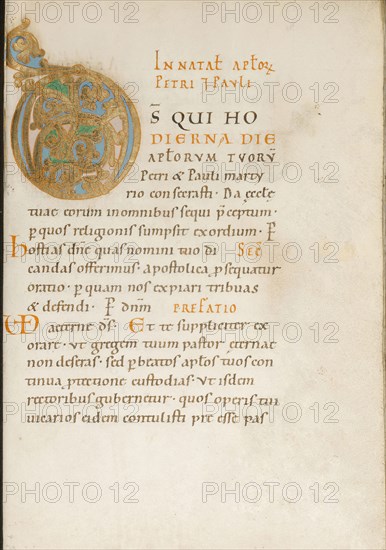 IN NATAĪ AP̄ŁORꝜ
PETRI ⁊ PAULI
D̄S QUI HO
DIERNA DIE
AP̄ŁORVM TVORV̄
Petri & Pauli marty
rio consecrasti · Da ęccłę
tuae eorum in omnibus sequi p̄ceptum ·
ꝑ quos religionis sumpsit exordium · P̄
hostias dn̄e quas nomini tuo di SEC̄
candas offerimus · apostolica ꝓsequatur
oratio · ꝑ quam nos expiari tribuas
& defendi · P̄ dnm̄ PREFATIO
UD aeterne d̄s · Et te suppliciter ex
orare · ut gregem tuum pastor aeternae
non deseras · sed ꝑ beatos ap̄łos tuos con
tinua ꝓtectione custodias · Ut isdem
rectoribus gubernetur · quos operis tui
vicarios eidem contulisti pre esse pas
PHOTO12